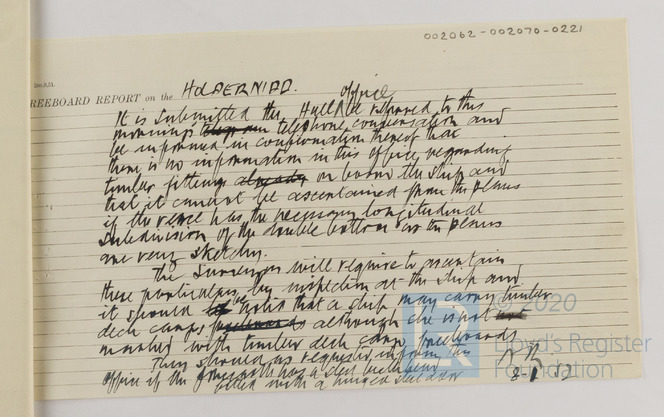 002062-002070-0221
REEBOARD REPORT on the HOLDERNIDD.
It is submitted the Hull office be referred to this
mornings telephone conversation and
be informed in confirmation thereof that
there is no information in this office regarding
timber fittings already on board the ship and
that it cannot be ascertained from the plans
if the vessel has the necessary longitudinal
subdivision of the double bottom as the plans
are very sketchy.
The Surveyors will require to ascertain
these particulars by inspection at the ship and
it should be noted that a ship may carry timber
deck cargo although she is not
marked with timber deck cargo freeboards
They should as requested inform this
office if the has a steel bulkhead
fitted with a hinged steel door
© 2020
Lloyd's Register
Foundation